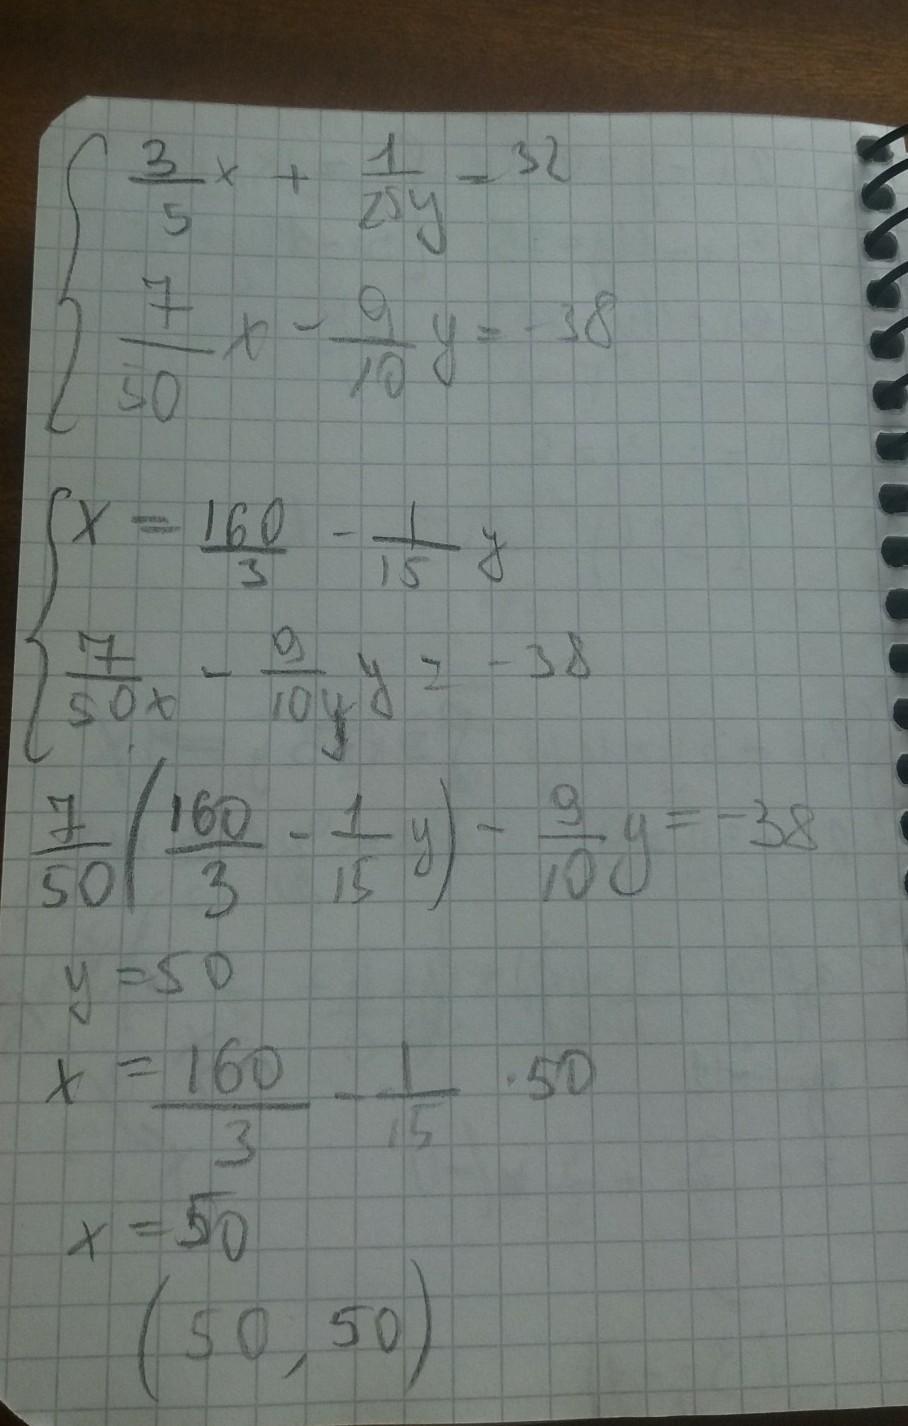 3/5 x + 1/25y = 32
7/50 x - 9/10 y = -38
x = 160/3 - 1/15 y
7/50x - 9/10y y = -38
7/50 (160/3 - 1/15 y) - 9/10 y = -38
y = 50
x = 160/3 - 1/15 · 50
x = 50
(50, 50)